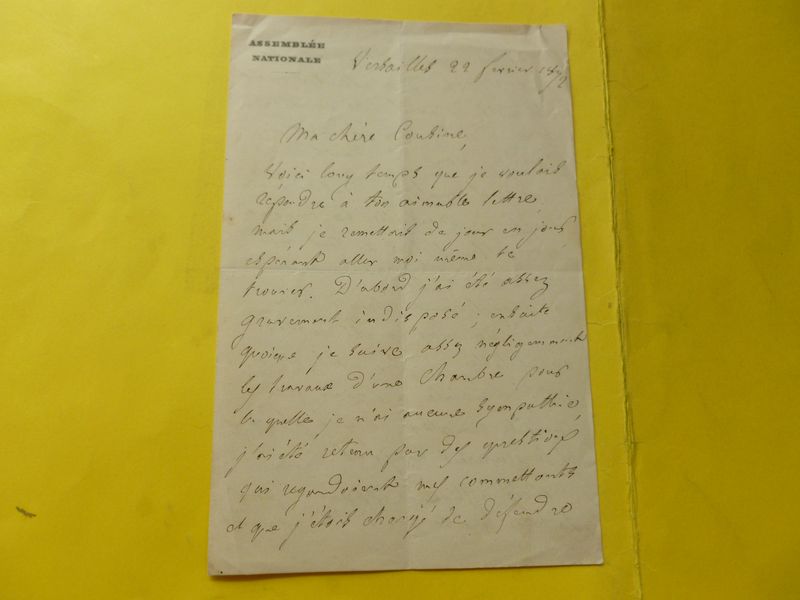 ASSEMBLÉE
NATIONALE
Versailles 22 février 1872
Ma chère Cousine,
Voici long temps que je voulais
répondre à ton aimable lettre
mais je remettais de jour en jour
espérant aller moi même te
trouver. D'abord j'ai été assez
gravement indisposé ; ensuite
quoique je suive assez négligemment
les travaux d'une Chambre pour
la quelle je n'ai aucune sympathie
j'ai été retenu par des questions
qui regardaient mes commettants
et que j'étois chargé de défendre